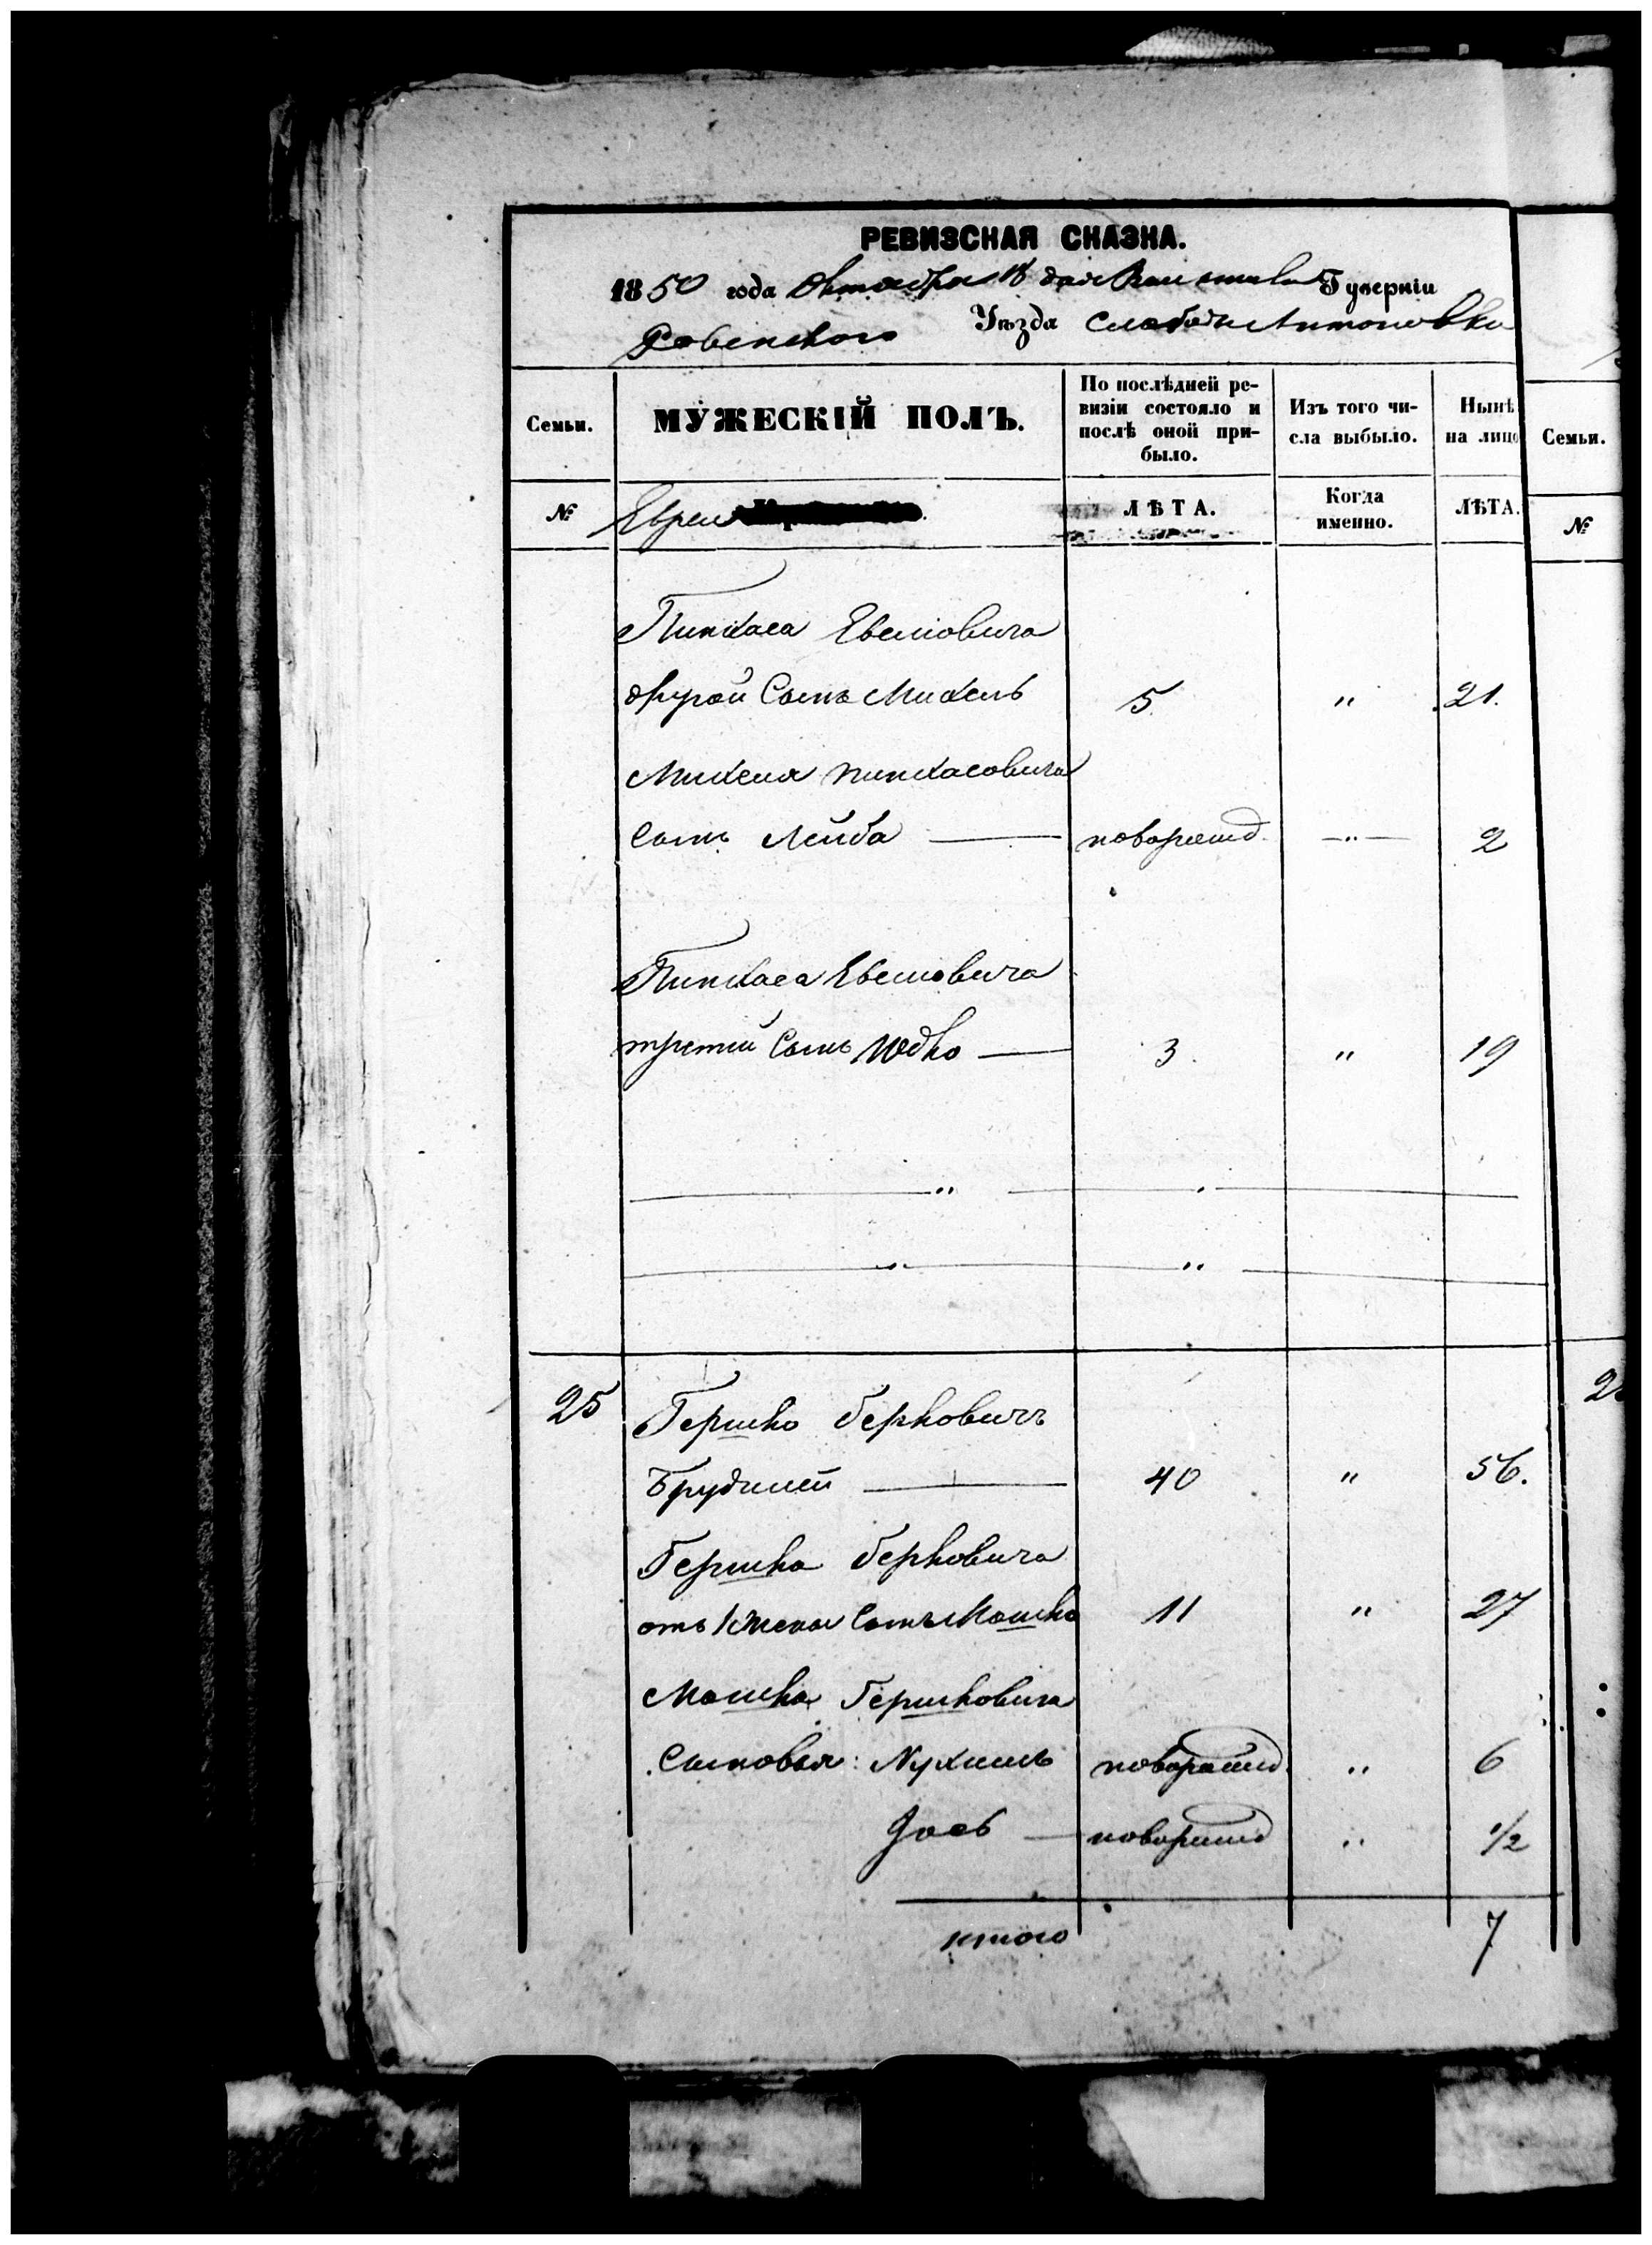 РЕВИЗСКАЯ СКАЗКА.
1850 года Октября 18 дня Волынской Губерніи
Ровенскаго Уѣзда слободы Антоновка
Семьи.
МУЖЕСКІЙ ПОЛЪ.
По послѣдней ре-
визіи состояло и
послѣ оной при-
было.
Изъ того чи-
сла выбыло.
Нынѣ
на лицо
Семьи.
№
Евреи
ЛѢТА.
Когда
именно.
ЛѢТА.
№
Пинхаса Евелiовича
другой Сынъ Михель 5. " 21.
Михеля Пинхасовича
Сынъ Лейба — новорожд — " — 2
Пинхаса Евелiовича
третий Сынъ Юдко — 3. " 19
25 Гершко Берковичъ
40 " 56.
Гершка Берковича
отъ 1 жены Сынъ Мошко 11 " 27
Мошка Гершковича
Сыновья: Нухимъ новорожд " 6
Iось — новорожд " 1/2
итого 7